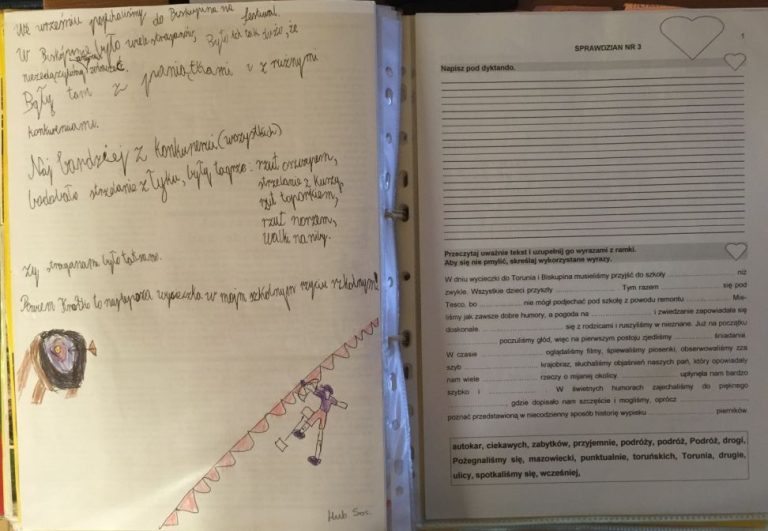 We wrześniu pojechaliśmy do Biskupina na festiwal.
W Biskupinie było wiele straganów, Było ich tak dużo, że
Były tam z pamiątkami i z rużnymi
konkurenciami.
Naj bardziej z konkurencji (wszystkich)
strzelanie z łyku, były tagrze: rzut oszczepem,
strzelanie z kuszy,
rzut toporkiem,
rzut norzem,
walki na niby.
straganami było
to najlepsza wycieczka w mojm szkolnym rzyciu szkolnym!
Hub Sos.
1
SPRAWDZIAN NR 3
Napisz pod dyktando.
Przeczytaj uważnie tekst i uzupełnij go wyrazami z ramki.
Aby się nie pmylić, skreślaj wykorzystane wyrazy.
W dniu wycieczki do Torunia i Biskupina musieliśmy przyjść do szkoły .................... niż
zwykle. Wszystkie dzieci przyszły .................... Tym razem .................... się pod
Tesco, bo .................... nie mógł podjechać pod szkołę z powodu remontu .................... Mie-
liśmy jak zawsze dobre humory, a pogoda na .................... i zwiedzanie zapowiadała się
doskonale. .................... się z rodzicami i ruszyliśmy w nieznane. Już na początku
.................... poczuliśmy głód, więc na pierwszym postoju zjedliśmy .................... śniadania.
W czasie .................... oglądaliśmy filmy, śpiewaliśmy piosenki, obserwowaliśmy zza
szyb .................... krajobraz, słuchaliśmy objaśnień naszych pań, który opowiadały
nam wiele .................... rzeczy o mijanej okolicy. .................... upłynęła nam bardzo
szybko i .................... . W świetnych humorach zajechaliśmy do pięknego
...................., gdzie dopisało nam szczęście i mogliśmy, oprócz ....................
poznać przedstawioną w niecodzienny sposób historię wypisku .................... pierników.
autokar, ciekawych, zabytków, przyjemnie, podróży, podróż, Podróż, drogi,
Pożegnaliśmy się, mazowiecki, punktualnie, toruńskich, Torunia, drugie,
ulicy, spotkaliśmy się, wcześniej,